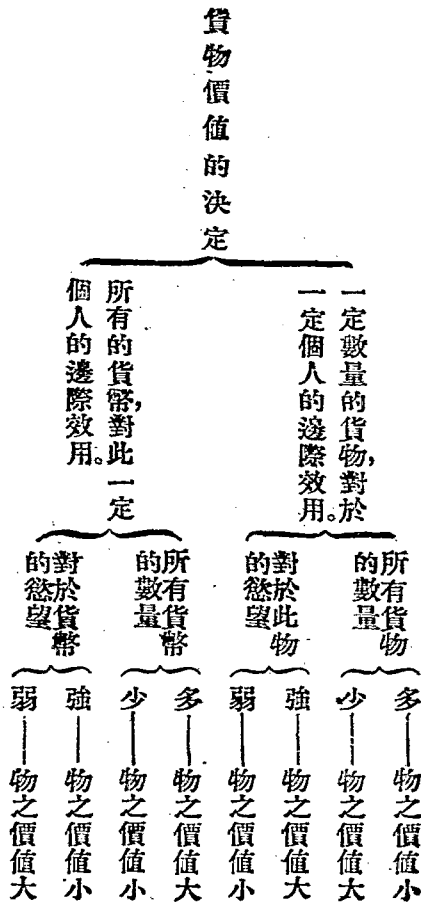 貨物價值的決定
一定數量的貨物，對於
一定個人的邊際效用。
所有的貨幣，對此一定
個人的邊際效用。
所有貨物
的數量
對於此物
的慾望
所有貨幣
的數量
對於貨幣
的慾望
多——物之價值小
少——物之價值大
強——物之價值大
弱——物之價值小
多——物之價值大
少——物之價值小
強——物之價值小
弱——物之價值大